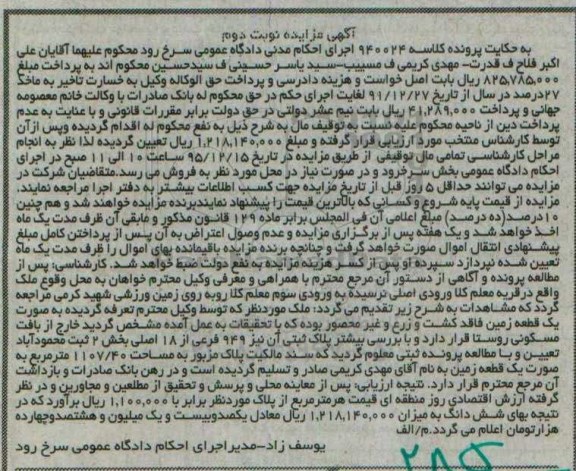 آگهی مزایده نوبت دوم
به حکایت پرونده کلاسه ۹۴۰۰۲۴ اجرای احکام مدنی دادگاه عمومی سرخ رود محکوم علیهما آقایان علی
اکبر فلاح ف قدرت- مهدی کریمی ف مسیبب-سید یاسر حسینی ف سیدحسین محکوم اند به پرداخت مبلغ
۸۲۵,۷۸۵,۰۰۰ ریال بابت اصل خواست و هزینه دادرسی و پرداخت حق الوکاله وکیل به خسارت تاخیر به ماخذ
۲۷درصد در سال از تاریخ ۹۱/۱۲/۲۷ لغایت اجرای حکم در حق محکوم له بانک صادرات با وکالت خانم معصومه
جهانی و پرداخت ۴۱,۲۸۹,۰۰۰ ریال بابت نیم عشر دولتی در حق دولت برابر مقررات قانونی و با عنایت به عدم
پرداخت دین از ناحیه محکوم علیه نسبت به توقیف مال به شرح ذیل به نفع محکوم له اقدام گردیده وپس ازآن
توسط کارشناس منتخب مورد ارزیابی قرار گرفته و مبلغ ۱,۲۱۸,۱۴۰,۰۰۰ ریال تعیین گردیده لذا نظر به انجام
مراحل کارشناسی تمامی مال توقیفی از طریق مزایده در تاریخ ۹۵/۱۲/۱۵ ساعت ۱۰ الی ۱۱ صبح در اجرای
احکام دادگاه عمومی بخش سرخرود و در صورت نیاز در محل مورد نظر به فروش می رسد.متقاضیان شرکت در
مزایده می توانند حداقل ۵ روز قبل از تاریخ مزایده جهت کسب اطلاعات بیشتر به دفتر اجرا مراجعه نمایند.
مزایده از قیمت پایه شروع و کسانی که بالاترین قیمت را پیشنهاد نمایندبرنده مزایده خواهند شد و هم چنین
۱۰درصد(ده درصد) مبلغ اعلامی آن فی المجلس برابر ماده ۱۲۹ قانون مذکور و مابقی آن ظرف مدت یک ماه
اخذ خواهد شد و یک هفته پس از برگزاری مزایده و عدم وصول اعتراض به آن پس از پرداختن کامل مبلغ
پیشنهادی انتقال اموال صورت خواهد گرفت و چنانچه برنده مزایده باقیمانده بهای اموال را ظرف مدت یک ماه
تعیین شده نپردازد سپرده او پس از کسر هزینه مزایده به نفع دولت ضبط خواهد شد. کارشناسی: پس از
مطالعه پرونده و آگاهی از دستور آن مرجع محترم با همراهی و معرفی وکیل محترم خواهان به محل وقوع ملک
واقع در قریه معلم کلا ورودی اصلی نرسیده به ورودی سوم معلم کلا روبه روی زمین ورزشی شهید کرمی مراجعه
گردد که مشاهدات به شرح زیر تقدیم می گردد: ملک موردنظر که توسط وکیل محترم تعرفه گردیده به صورت
یک قطعه زمین فاقد کشت و زرع و غیر محصور بوده که با تحقیقات به عمل آمده مشخص گردید خارج از بافت
مسکونی روستا قرار دارد و با بررسی بیشتر پلاک ثبتی آن نیز ۹۴۹ فرعی از ۱۸ اصلی بخش ۲ ثبت محمودآباد
تعیین و با مطالعه پرونده ثبتی معلوم گردید که سند مالکیت پلاک مزبور به مساحت ۱۱۰۷/۴۰ مترمربع به
صورت یک قطعه زمین به نام آقای مهدی کریمی صادر و تسلیم گردیده است و در رهن بانک صادرات و بازداشت
آن مرجع محترم قرار دارد. نتیجه ارزیابی: پس از معاینه محلی و پرسش و تحقیق از مطلعین و مجاورین و در نظر
گرفته ارزش اقتصادی روز منطقه ای قیمت هرمترمربع از پلاک موردنظر برابر با ۱,۱۰۰,۰۰۰ ریال برآورد که در
نتیجه بهای شش دانگ به میزان ۱,۲۱۸,۱۴۰,۰۰۰ ریال معادل یکصدوبیست و یک میلیون و هشتصدوچهارده
هزارتومان اعلام می گردد.م/الف
یوسف زاد-مدیراجرای احکام دادگاه عمومی سرخ رود